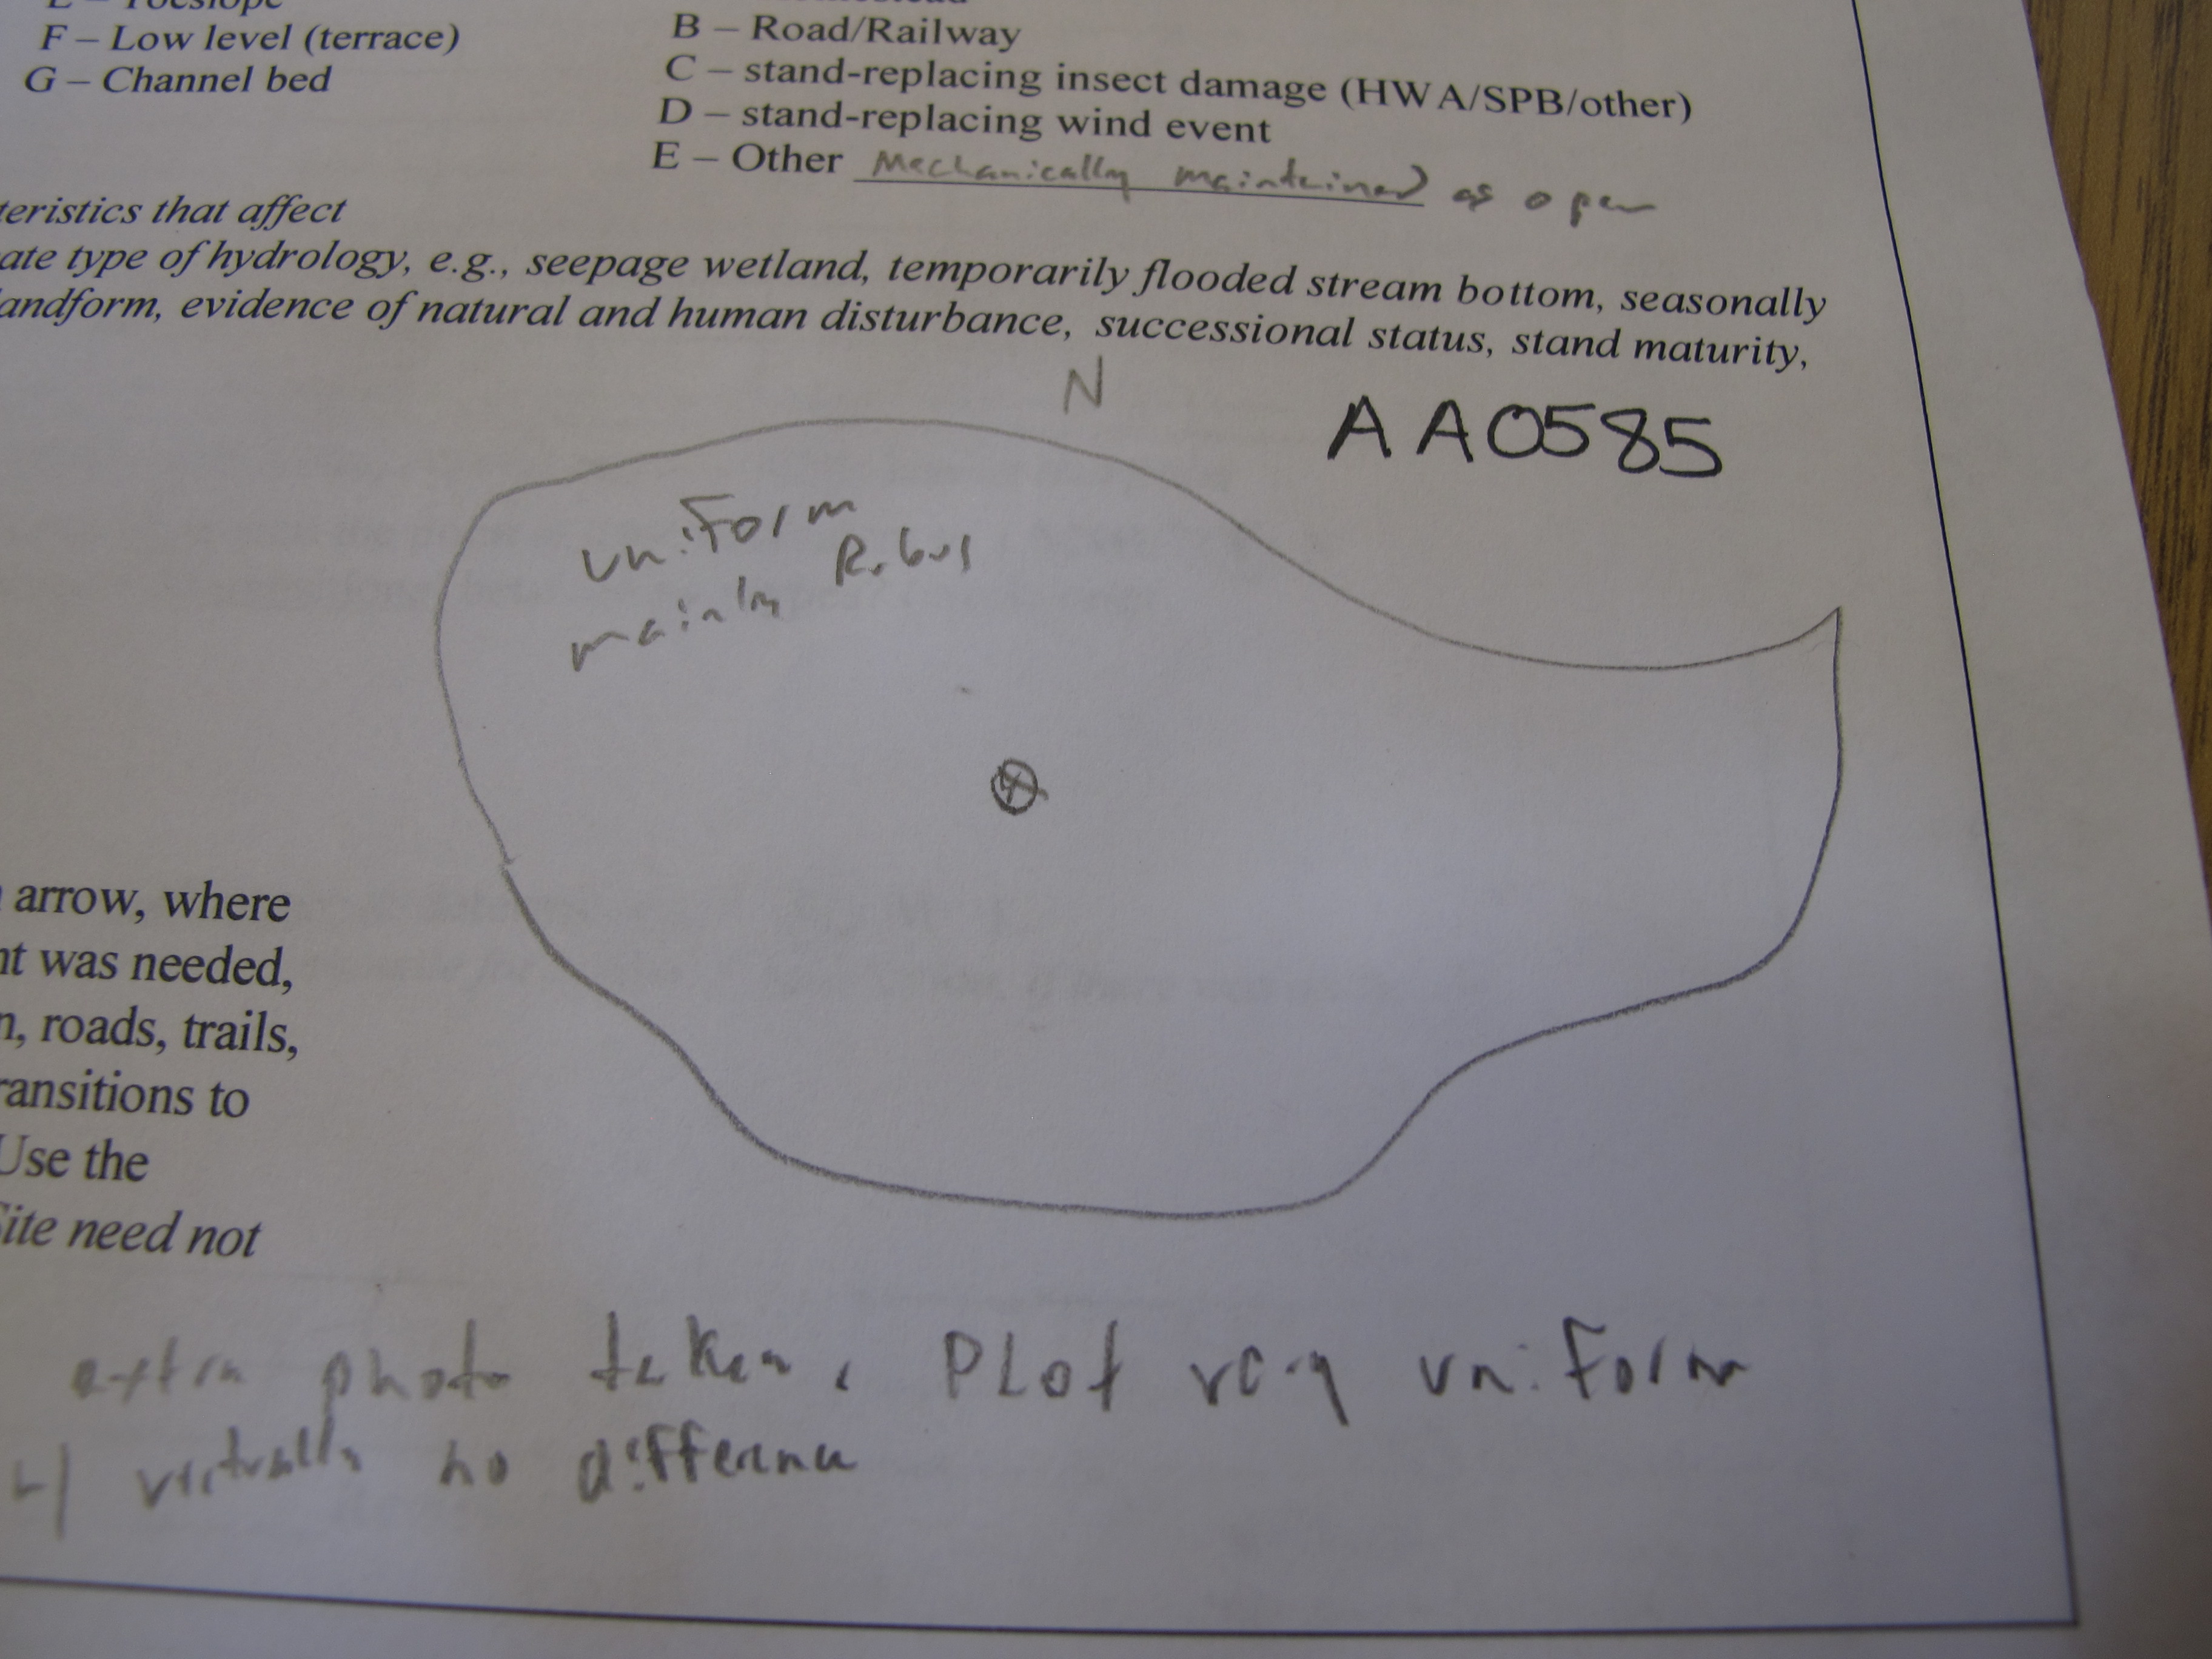 F – Low level (terrace)
G – Channel bed
B – Road/Railway
C – stand-replacing insect damage (HWA/SPB/other)
D – stand-replacing wind event
E – Other Mechanically maintained as open
teristics that affect
ate type of hydrology, e.g., seepage wetland, temporarily flooded stream bottom, seasonally
landform, evidence of natural and human disturbance, successional status, stand maturity,
N
AA0585
uniform
mainly Rubus
arrow, where
nt was needed,
n, roads, trails,
ransitions to
Use the
Site need not
extra photo taken. Plot very uniform
w/ virtually no difference